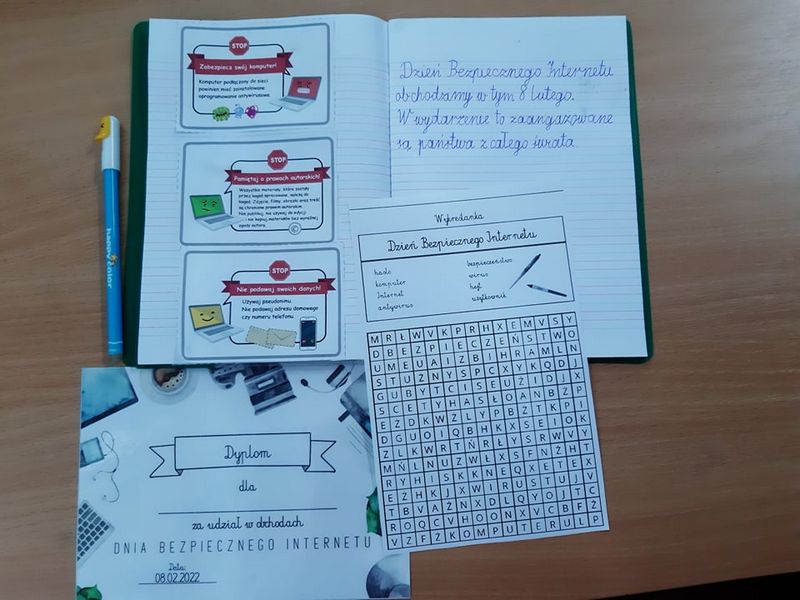 STOP
Zabezpiecz swój komputer!
Komputer podłączony do sieci
powinien mieć zainstalowane
oprogramowanie antywirusowe.
STOP
Pamiętaj o prawach autorskich!
Wszystkie materiały, które zostały
przez kogoś opracowane, należą do
kogoś. Zdjęcia, filmy, obrazki oraz treść
są chronione prawem autorskim.
Nie publikuj, nie używaj do edycji
i nie kopiuj materiałów bez wyraźnej
zgody autora.
©
STOP
Nie podawaj swoich danych!
Używaj pseudonimu.
Nie podawaj adresu domowego
czy numeru telefonu.
Dzień Bezpiecznego Internetu
obchodzimy w tym 8 lutego.
W wydarzenie to zaangażowane
są państwa z całego świata.
happy color
Wykreślanka
Dzień Bezpiecznego Internetu
hasło
komputer
Internet
antywirus
bezpieczeństwo
wirus
hejt
użytkownik
M R Ł W V K P R H X E M V S Y
D B E Z P I E C Z E Ń S T W O
U M E U A I Z B I H R A M L N
S T U Ż N Y S P C X Y K Q D J
G U B Y T C I S E U Ż I D L X
S C E T Y H A S Ł O A N B Ż P
E Ż D K W Ż L Y P B Z T K P I
D G U O I Q B H K X S E I O K
Z L K W R T Ń R Ł Y S R W V Y
M Ń L N U Z W Ł X S F N Ż H T
R Y H I S K K N E Q X E T E X
E Ż H K J X W I R U S T U J V
T B V A Ż N X D L Q Y O J T C
R O Q C V H O O N X V C B F Ż
V Z F Ż K O M P U T E R U L P
Dyplom
dla
za udział w obchodach
DNIA BEZPIECZNEGO INTERNETU
Data:
08.02.2022